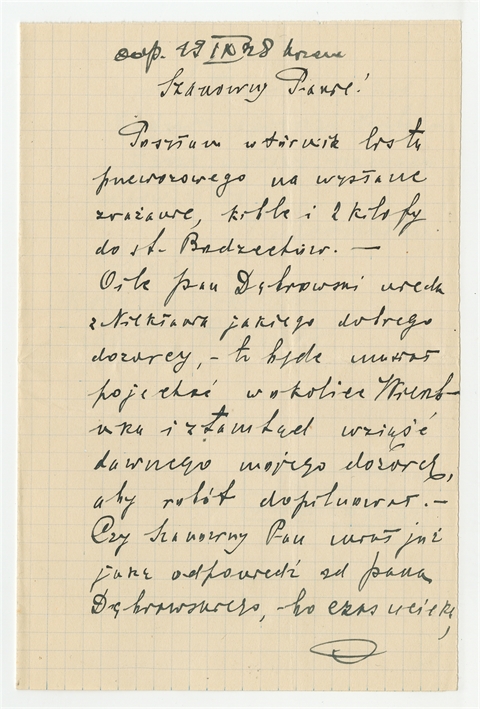 odp. 13 IX 28
Szanowny Panie!
Posyłam wtórnik listu
przewozowego na wysłane
i 2 kilofy
do st. Bodzechów. —
O ile pan Dąbrowski
z Niekłania jakiego dobrego
dozorcy, – to będę musiał
pojechać w okolice Wierzb-
nika i ztamtąd wziąść
dawnego mojego dozorcę,
aby robót dopilnował. –
Czy Szanowny Pan miał już
jaką odpowiedź od pana
Dąbrowskiego, – bo czas ucieka,